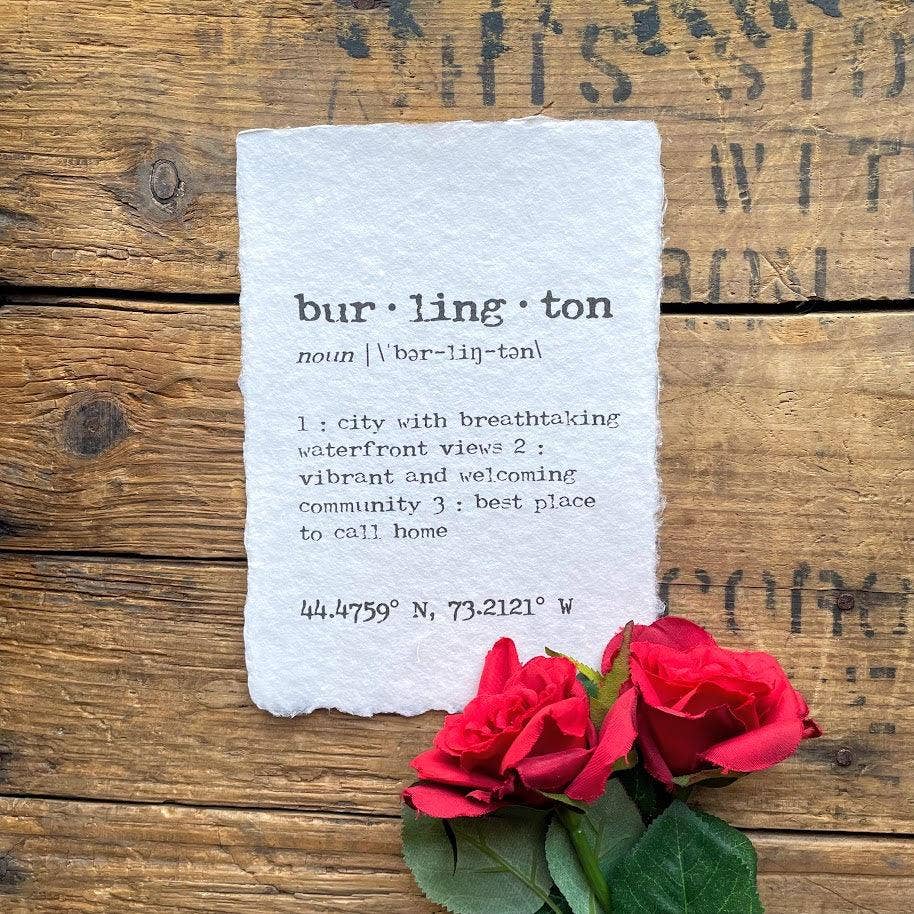 HIS SID
WIT
bur · ling · ton
noun | \ˈbər-liŋ-tən\
1 : city with breathtaking
waterfront views 2 :
vibrant and welcoming
community 3 : best place
to call home
44.4759° N, 73.2121° W